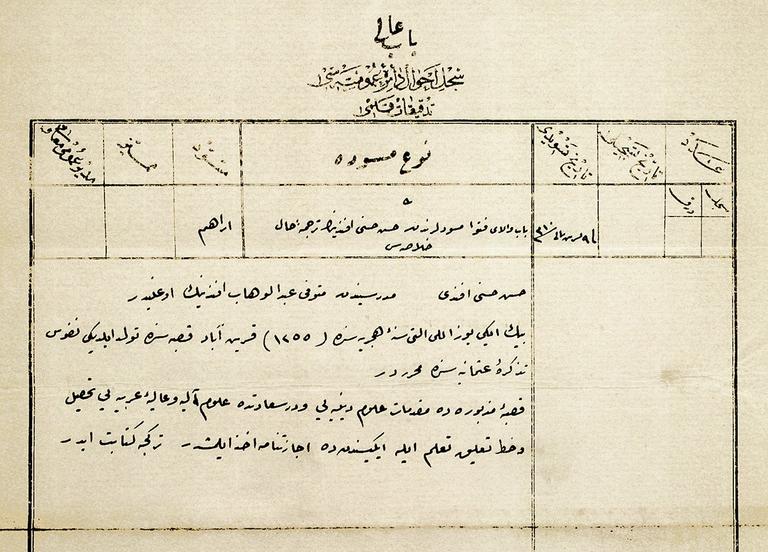 باب عالی
سجل احوال دائرهٔ عمومیه سی
تدقیقات قلمی
عدد
تاریخ تسجیل
تاریخ تسوید
نوع مسوده
مسود
ممیز
سجل
ورق
باب والای فتوا مسودلرندن حسن حسنی افندینك ترجمهٔ حال
خلاصه سی
ابراهیم
حسن حسنی افندی مدرسیندن متوفی عبدالوهاب افندینك اوغلیدر
بیك ایکی یوز اللی التی سنهٔ هجریه سنده (١٢٥٥) قرین آباد قصبه سنده تولد ایلدیکی نفوس
تذکرهٔ عثمانیه سنده محرردر
قصبهٔ مذبوره ده مقدمات علوم دینیه یی ودرسعادتده علوم آلیه وعالیهٔ عربیه یی تحصیل
وخط تعلیق تعلم ایله ایکیسندن ده اجازتنامه اخذ ایلمشدر ترکجه کتابت ایدر